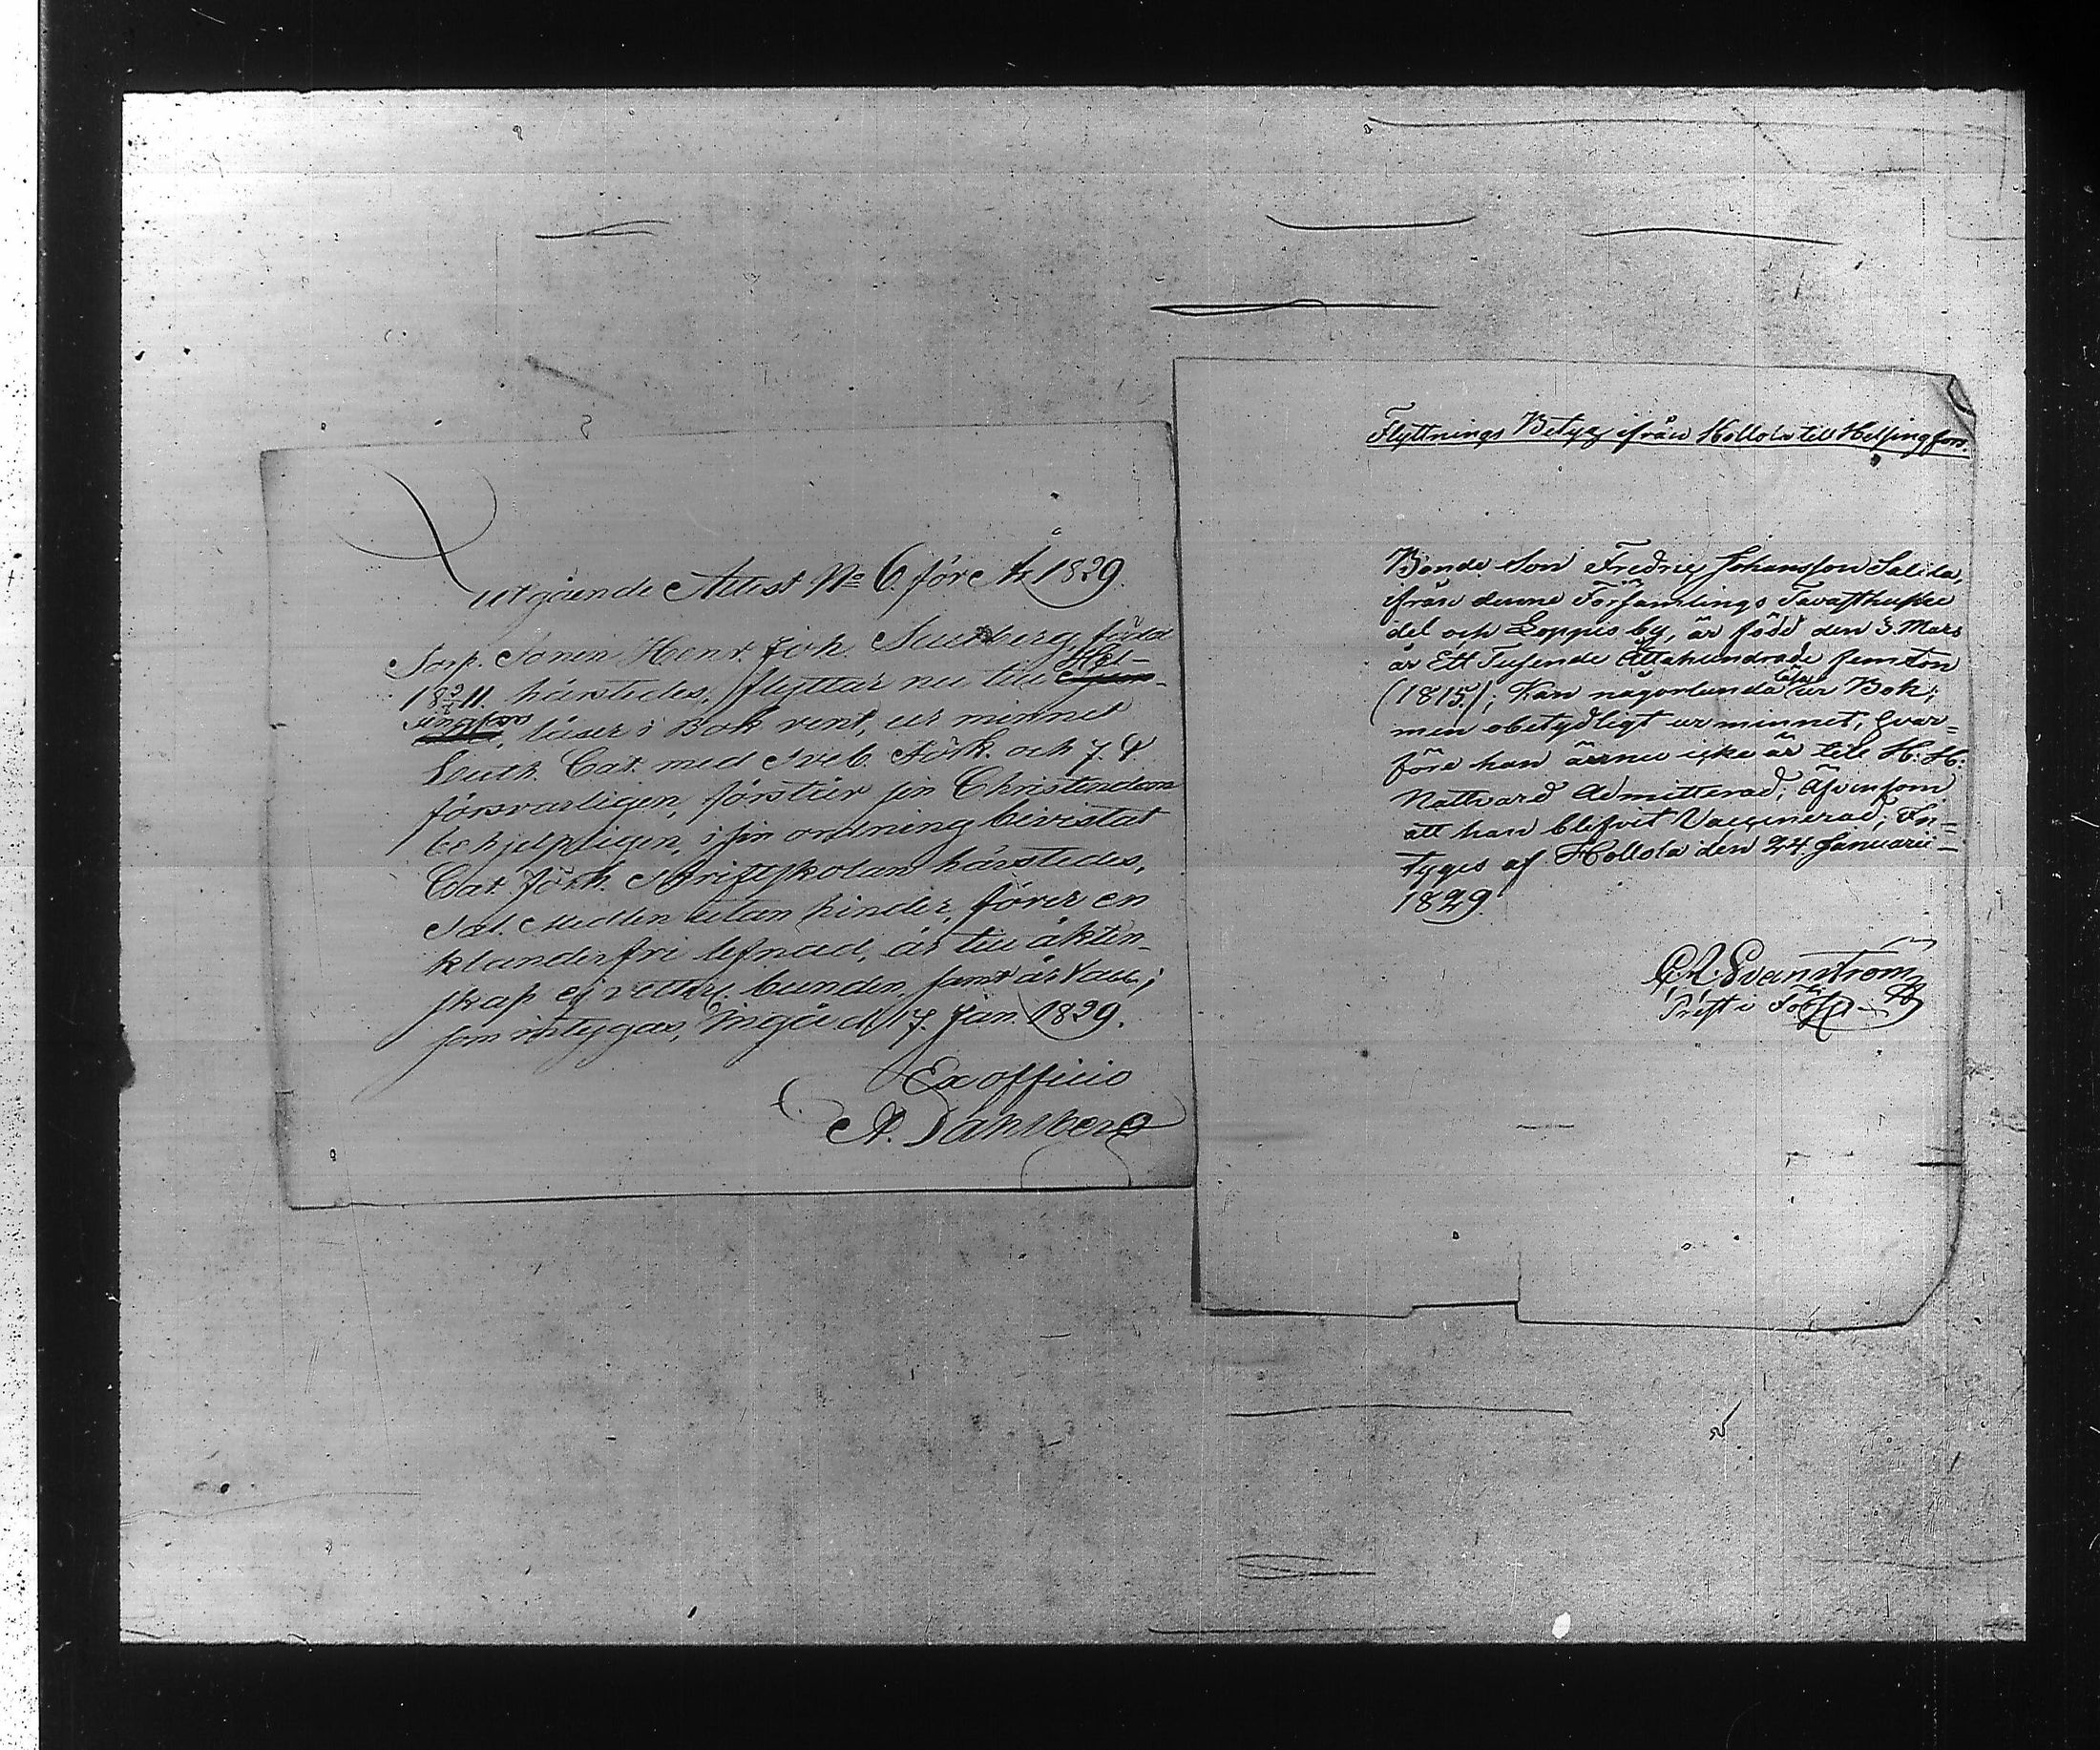 utgående Attest No 6. för År 1829.
Torp. Sonen Henr. Joh. Sundberg, född
18 2/8 11. härstedes, flyttar nu till Hel-
singfors, läser i Bok rent, ur minnet
Luth. Cat. med Sveb. Förk. och
försvarligen, förstår sin Christendom
behjelpligen, i sin ordning bevistat
Cat. förh. Skriftskolan härstedes,
Sal. Medlen utan hinder, förer en
klanderfri lefnad, är till äkten-
skap ej vetterl. bunden, samt är Vacc;
som intygas, Ingå d. 17. Jan. 1829.
Ex officio
A. Dahlberg
Flyttnings Betyg ifrån Hollola till Helsingfors.
Bonde Son Fredric Johansson Salila,
ifrån denne Församlings Tavasthuske
del och Loppis by, är född den 3. Mars
år Ett Tusende Åttahundrade femton
(1815.); Kan någorlunda läsa ur Bok;
men obetydligt ur minnet, hvar=
före han ännu icke är till H. H.
Nattvard Admitterad; Äfvensom
att han blifvit Vaccinerad; In=
tyges af Hollola den 24. Januarii
1829.
Svanström
Prest i